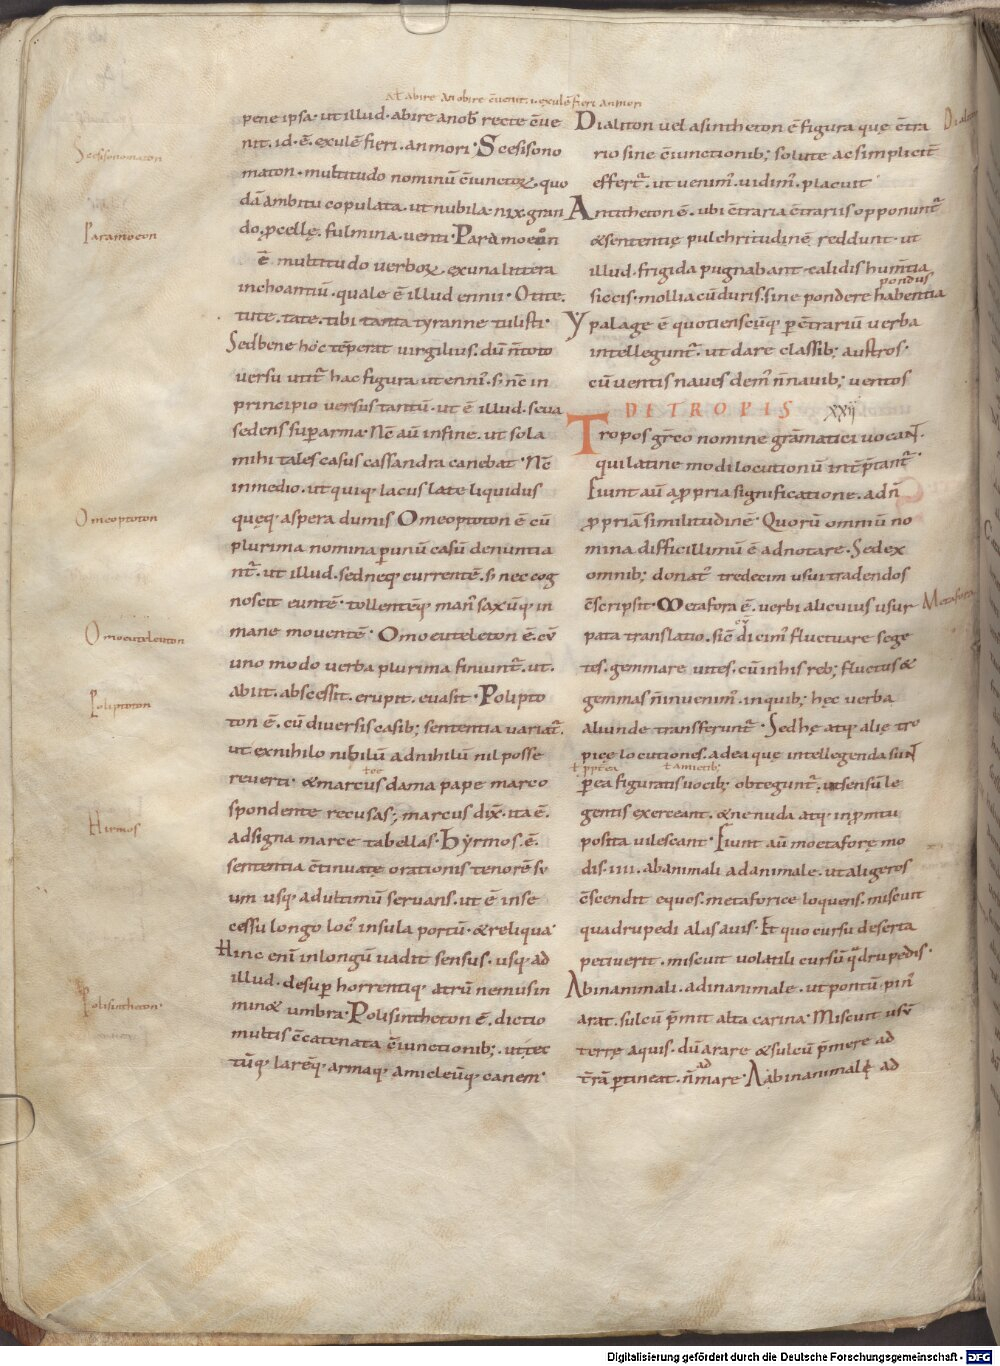 ał abire an obire c̄uenit. i. exulē fieri an mori
pene ipsa. ut illud. abire an ob̄ recte c̄ue
nit. id. ē. exulē fieri. an mori. Scesisono
maton. multitudo nominū c̄iunctoꝝ. quo
dā ambitu copulata. ut nubila. nix. gran
do. ꝓcellę. fulmina. uenti. Paramoeon
ē multitudo uerboꝝ. ex una littera
inchoantiū. quale ē illud ennii. O tite.
tute. tate. tibi tanta tyranne tulisti.
Sed bene hoc tēperat uirgilius. dū n̄ toto
uersu utit᷑ hac figura ut enni᷒. s; nc̄ in
principio uersus tantū. ut ē illud. seua
sedens sup arma. Nc̄ aū in fine. ut sola
mihi tales casus cassandra canebat. Nc̄
in medio. ut quiq; lacus late liquidus
quęq; aspera dumis Omeoptoton ē cū
plurima nomina p unū casū denuntia
nt᷑. ut illud. sed neq; currentē. s; nec cog
noscit euntē. tollentēq; man᷒ saxūq; in
mane mouentē. Omoeuteleton ē. cū
uno modo uerba plurima finiunt᷑. ut.
abiit. abscessit. erupit. euasit. Polipto
ton ē. cū diuersis casib; sententia uariat᷑.
ut ex nihilo nihilū ad nihilū nil posse
reuerti. & marcus dama pape marco
spondente recusas; marcus dix̄. ita ē.
adsigna marce tabellas. Hyrmos. ē.
sententia c̄tinuatę orationis tenorē su
um usq; ad ultimū seruans. ut ē in se
cessu longo loc᷒ insula portū. & reliqua
Hinc eni in longū uadit sensus. usq; ad
illud. desup horrentiq; atrū nemus in
min& umbra. Polisintheton ē. dictio
multis c̄catenata c̄iunctionib;. ut tec
tūq; larēq; armaq; amicleūq; canem.
Scesisonomaton
Paramoeon
Omeoptoton
Omoeuteleuton
Poliptoton
Hirmos
Polisintheton.
Dialiton uel asintheton ē figura que c̄tra
rio sine c̄iunctionib; solute ac simplicit̄
effert᷑. ut uenim᷒. uidim᷒. placuit
Antitheton ē. ubi c̄traria c̄trariis opponunt᷑
& sententię pulchritudinē reddunt. ut
illud. frigida pugnabant calidis humentia
pondus
siccis. mollia cū duris. sine pondere habentia
Ypalage ē quotienscūq; p c̄trariū uerba
intellegunt᷑. ut dare classib; austros.
cū uentis naues dem᷒ n̄ nauib; uentos
DE TROPIS xxii
Tropos greco nomine grāmatici uocant.
qui latine modi locutionū intp̄tant᷑.
Fiunt aū a ꝓpria significatione. ad n̄
ꝓpriā similitudinē. Quorū omniū no
mina difficillimū ē adnotare. Sed ex
omnib; donat᷒ tredecim usui tradendos
c̄scripsit. Metafora ē. uerbi alicuius usur
pata translatio. sic̄ dicim᷒ fluctuare sege
tes. gemmare uites. cū in his reb; fluctus &
gemmas n̄ inuenim᷒. in quib; hec uerba
aliunde transferunt᷑. Sed hę atq; alię tro
picę locutiones. ad ea que intellegenda sunt
ł ppt̄ ea ł amictib;
p ea figuratis uocib; obtegunt᷑. ut sensū le
gentis exerceant. & ne nuda atq; in prōtu
posita uilescant. Fiunt aū moetaforę mo
dis. IIII. ab animali ad animale. ut aligeros
c̄scendit equos. metaforice loquens. miscuit
quadrupedi alas auis. Et quo cursu deserta
petiuerit. miscuit uolatili cursū q̄drupedis.
Ab inanimali. ad inanimale. ut pontū pin᷒
arat. sulcū p̄mit alta carina. Miscuit usū
terrę aquis. dū arare & sulcū p̄mere ad
ad
t̄rā ptineat. n̄ mare. Ab inanimale ad
Dialiton
Metafora
Digitalisierung gefördert durch die Deutsche Forschungsgemeinschaft - DFG